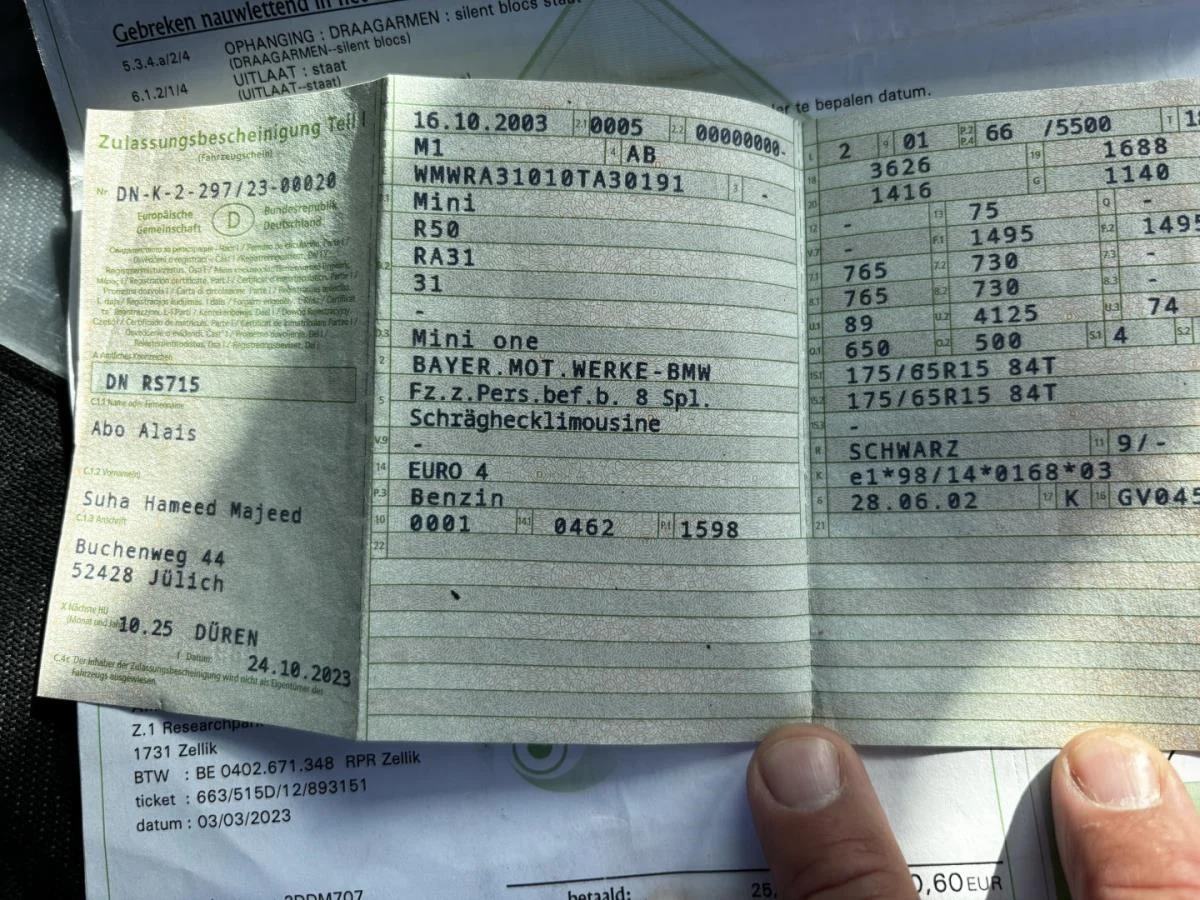 Gebreken nauwlettend in
5.3.4.a/2/4 OPHANGING : DRAAGARMEN : silent blocs staat
(DRAAGARMEN--silent blocs)
6.1.2/1/4 UITLAAT : staat
(UITLAAT--staat)
te bepalen datum.
Zulassungsbescheinigung Teil I
(Fahrzeugschein)
Nr. DN-K-2-297/23-00020
Europäische Gemeinschaft D Bundesrepublik Deutschland
A Amtliches Kennzeichen
DN RS715
C.1.1 Name oder Firmenname
Abo Alais
C.1.2 Vorname(n)
Suha Hameed Majeed
C.1.3 Anschrift
Buchenweg 44
52428 Jülich
X Nächste HU
(Monat und Jahr) 10.25 DÜREN
I Datum: 24.10.2023
C.4c Der Inhaber der Zulassungsbescheinigung wird nicht als Eigentümer des
Fahrzeugs ausgewiesen.
16.10.2003 2.1 0005 2.2 00000000-
M1 4 AB
WMWRA31010TA30191 3 -
Mini
R50
RA31
31
-
D.3 Mini one
2 BAYER.MOT.WERKE-BMW
5 Fz.z.Pers.bef.b. 8 Spl.
Schräghecklimousine
V.9 -
14 EURO 4
P.3 Benzin
10 0001 14.1 0462 P.1 1598
22
L 2 9 01 P.2 P.4 66 /5500 T
18 3626 19 1688
20 1416 G 1140
12 - 13 75 Q -
V.7 - F.1 1495 F.2 1495
7.1 765 7.2 730 7.3 -
8.1 765 8.2 730 8.3 -
U.1 89 U.2 4125 U.3 74
O.1 650 O.2 500 S.1 4 S.2
15.1 175/65R15 84T
15.2 175/65R15 84T
15.3 -
R SCHWARZ 11 9/-
K e1*98/14*0168*03
6 28.06.02 17 K 16 GV045
21
Z.1 Researchpark
1731 Zellik
BTW : BE 0402.671.348 RPR Zellik
ticket : 663/515D/12/893151
datum : 03/03/2023
betaald: 25, 0,60 EUR